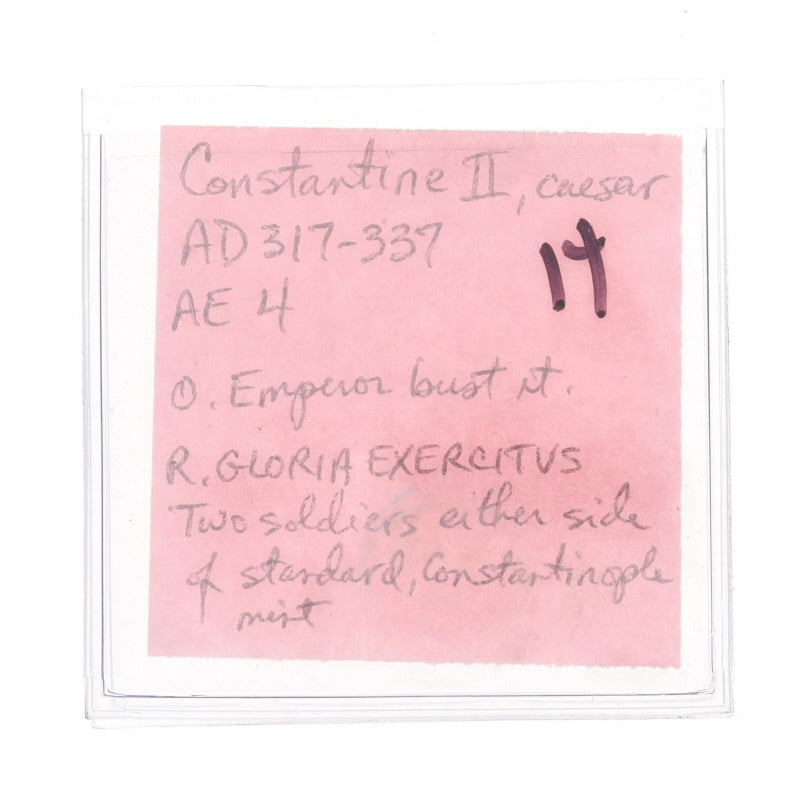 Constantine II, caesar
AD 317-337
14
AE 4
O. Emperor bust rt.
R. GLORIA EXERCITVS
Two soldiers either side
of standard, Constantinople
mint